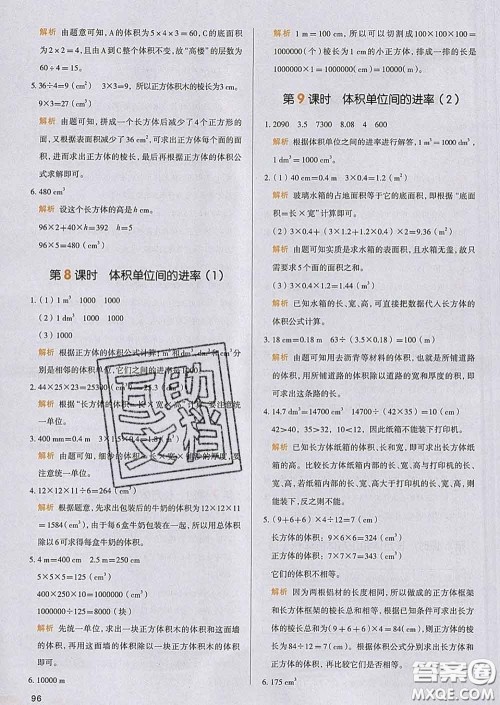 解析 由题意可知,A的体积为5×4×3=60,B的体积为
2×2=4,且A到C整个体积不变,故“高楼”的层数为
60÷4=15。
5. 36÷4=9(cm²) 3×3=9,所以正方体积木的棱长为3 cm。
9×3=27(cm³)
解析 由题可知,拼成一个长方体后减少了4个正方形的
面,又可根据表面积减少了36 cm²,可求出正方体每个面
的面积,进而求出正方体的棱长,最后再根据正方体的体积公
式求解即可。
6. 480 cm³
解析 设这个长方体的高是h cm。
96×2+40×h=392 h=5
96×5=480(cm³)
第8课时 体积单位间的进率(1)
1. (1) 1 m³ 1000 1000
(2) 1000 1000
(3) 1000
解析 根据正方体的体积公式计算;m³和dm³,dm³和cm³分
别是相邻的体积单位,它们之间的进率是1000。
2. 44×25×23=25300
解析 根据“长方体的体积=长×宽×高”计算,要注意统
一单位。
3. 400 mm=0.4 m 3×1.5×0.4=1.8(m³)
解析 由题可知,细沙的体积=长×宽×厚度,即可求解,要
注意统一单位。
4. 12×12×11÷6=264(cm³)
解析 根据题意,先求出包装后的牛奶的体积为12×12×11
=1584(cm³),由于每6盒牛奶包装在一起,所以用总体积除
以6可求得每盒牛奶的体积。
5. 4 m=400 cm 2.5 m=250 cm
5×5×5=125(cm³)
400×250×10=1000000(cm³)
1000000÷125=8000(块)
解析 先统一单位,求出一块正方体积木的体积和这面墙
的体积,再用这面墙的体积除以一块正方体积木的体积即
可。
6. 10000 m
96
解析 1 m=100 cm,所以可以切割成100×100×100=
1000000(个)1 cm³的小正方体,排成一行,长为1×
1000000=1000000(cm)=10000(m)。
第9课时 体积单位间的进率(2)
1. 2090 3.5 7300 8.08 4 600
解析 根据体积单位之间的进率进行解答,1 m³=1000 dm³,
1 dm³=1000 cm³。
2. (1) 40 cm=0.4 m 3×1.2=3.6(m²)
解析 玻璃水箱的占地面积等于它的底面积,即根据“底面
面积=长×宽”计算即可。
(2) 3×0.4+(3×1.2+1.2×0.4)×2=9.36(m²)
解析 由题可知是求水箱的表面积,且水箱无盖,故这道题
只需要求5个面的面积之和即可。
(3) 3×1.2×0.4=1.44(m³)
解析 已知水箱的长、宽、高,可直接把数据代入长方体的体
积公式计算。
3. 18 cm=0.18 m 63÷(3.5×0.18)=100(m)
解析 由题可知要用去沥青等材料的体积,也就是所铺道路
的体积,所以用所铺道路的体积除以道路的宽和厚度的积,即
可求出这条路的长。
4. 14.7 dm³=14700 cm³ 14700÷(42×35)=10(cm)
42>40,35>34,10<12,因此不能装下。
解析 已知长方体纸箱的体积、长和宽,即可求出长方体纸
箱的高。比较长方体纸箱内部的长、宽、高与打印机的长、
宽、高,若纸箱内部的长、宽、高大于打印机的长、宽、高,则
能装下,反之,则不能装下。
5. (9+6+6)×4÷12=7(cm)
长方体的体积:9×6×6=324(cm³)
正方体的体积:7×7×7=343(cm³)
它们的体积不相等。
解析 因为两根铝材的长度相同,所以做成的正方体框架
与长方体框架的棱长总和相等,可根据长方体的棱长总和
求出正方体的棱长为(9+6+6)×4÷12=7(cm),从而
求出正方体的体积,再比较它们的体积是否相等。
6. 175 cm³
互助
文档
答案圈
MXQE.COM